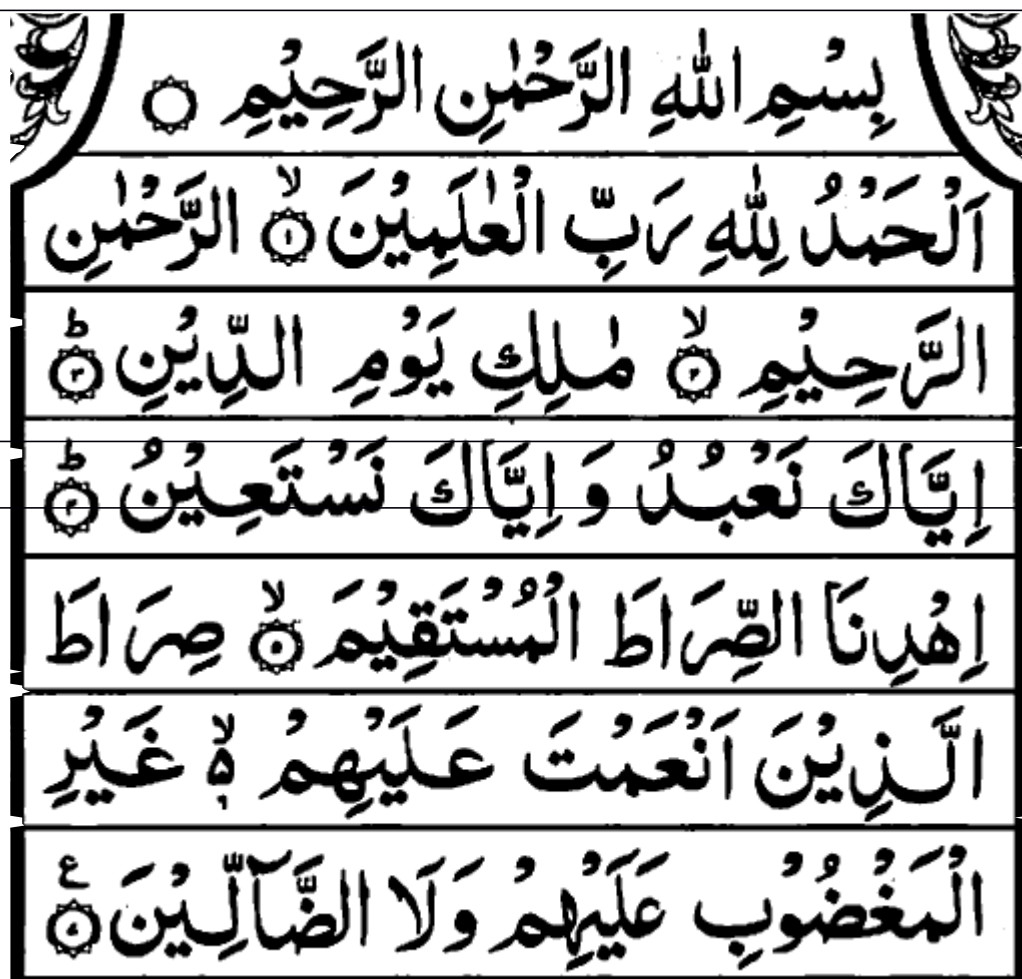 بِسْمِ اللّٰهِ الرَّحْمٰنِ الرَّحِيْمِ ۝
اَلْحَمْدُ لِلّٰهِ رَبِّ الْعٰلَمِيْنَ ۙ‏﴿۱﴾ الرَّحْمٰنِ
الرَّحِيْمِ ۙ‏﴿۲﴾ مٰلِكِ يَوْمِ الدِّيْنِ ؕ‏﴿۳﴾
اِيَّاكَ نَعْبُدُ وَ اِيَّاكَ نَسْتَعِيْنُ ؕ‏﴿۴﴾
اِهْدِنَا الصِّرَاطَ الْمُسْتَقِيْمَ ۙ‏﴿۵﴾ صِرَاطَ
الَّذِيْنَ اَنْعَمْتَ عَلَيْهِمْ ۙ۬ۦ۶ غَيْرِ
الْمَغْضُوْبِ عَلَيْهِمْ وَلَا الضَّآلِّيْنَ ﴿۷﴾ ع